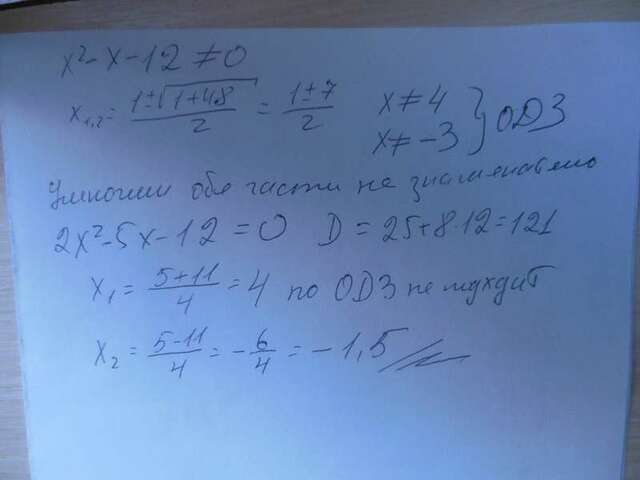 x²-x-12≠0
x₁,₂=(1±√(1+48))/2=(1±7)/2 x≠4 x≠-3 } ОДЗ
Умножим обе части на знаменатель
2x²-5x-12=0 D=25+8·12=121
x₁=(5+11)/4=4 по ОДЗ не подходит
x₂=(5-11)/4=-6/4=-1,5